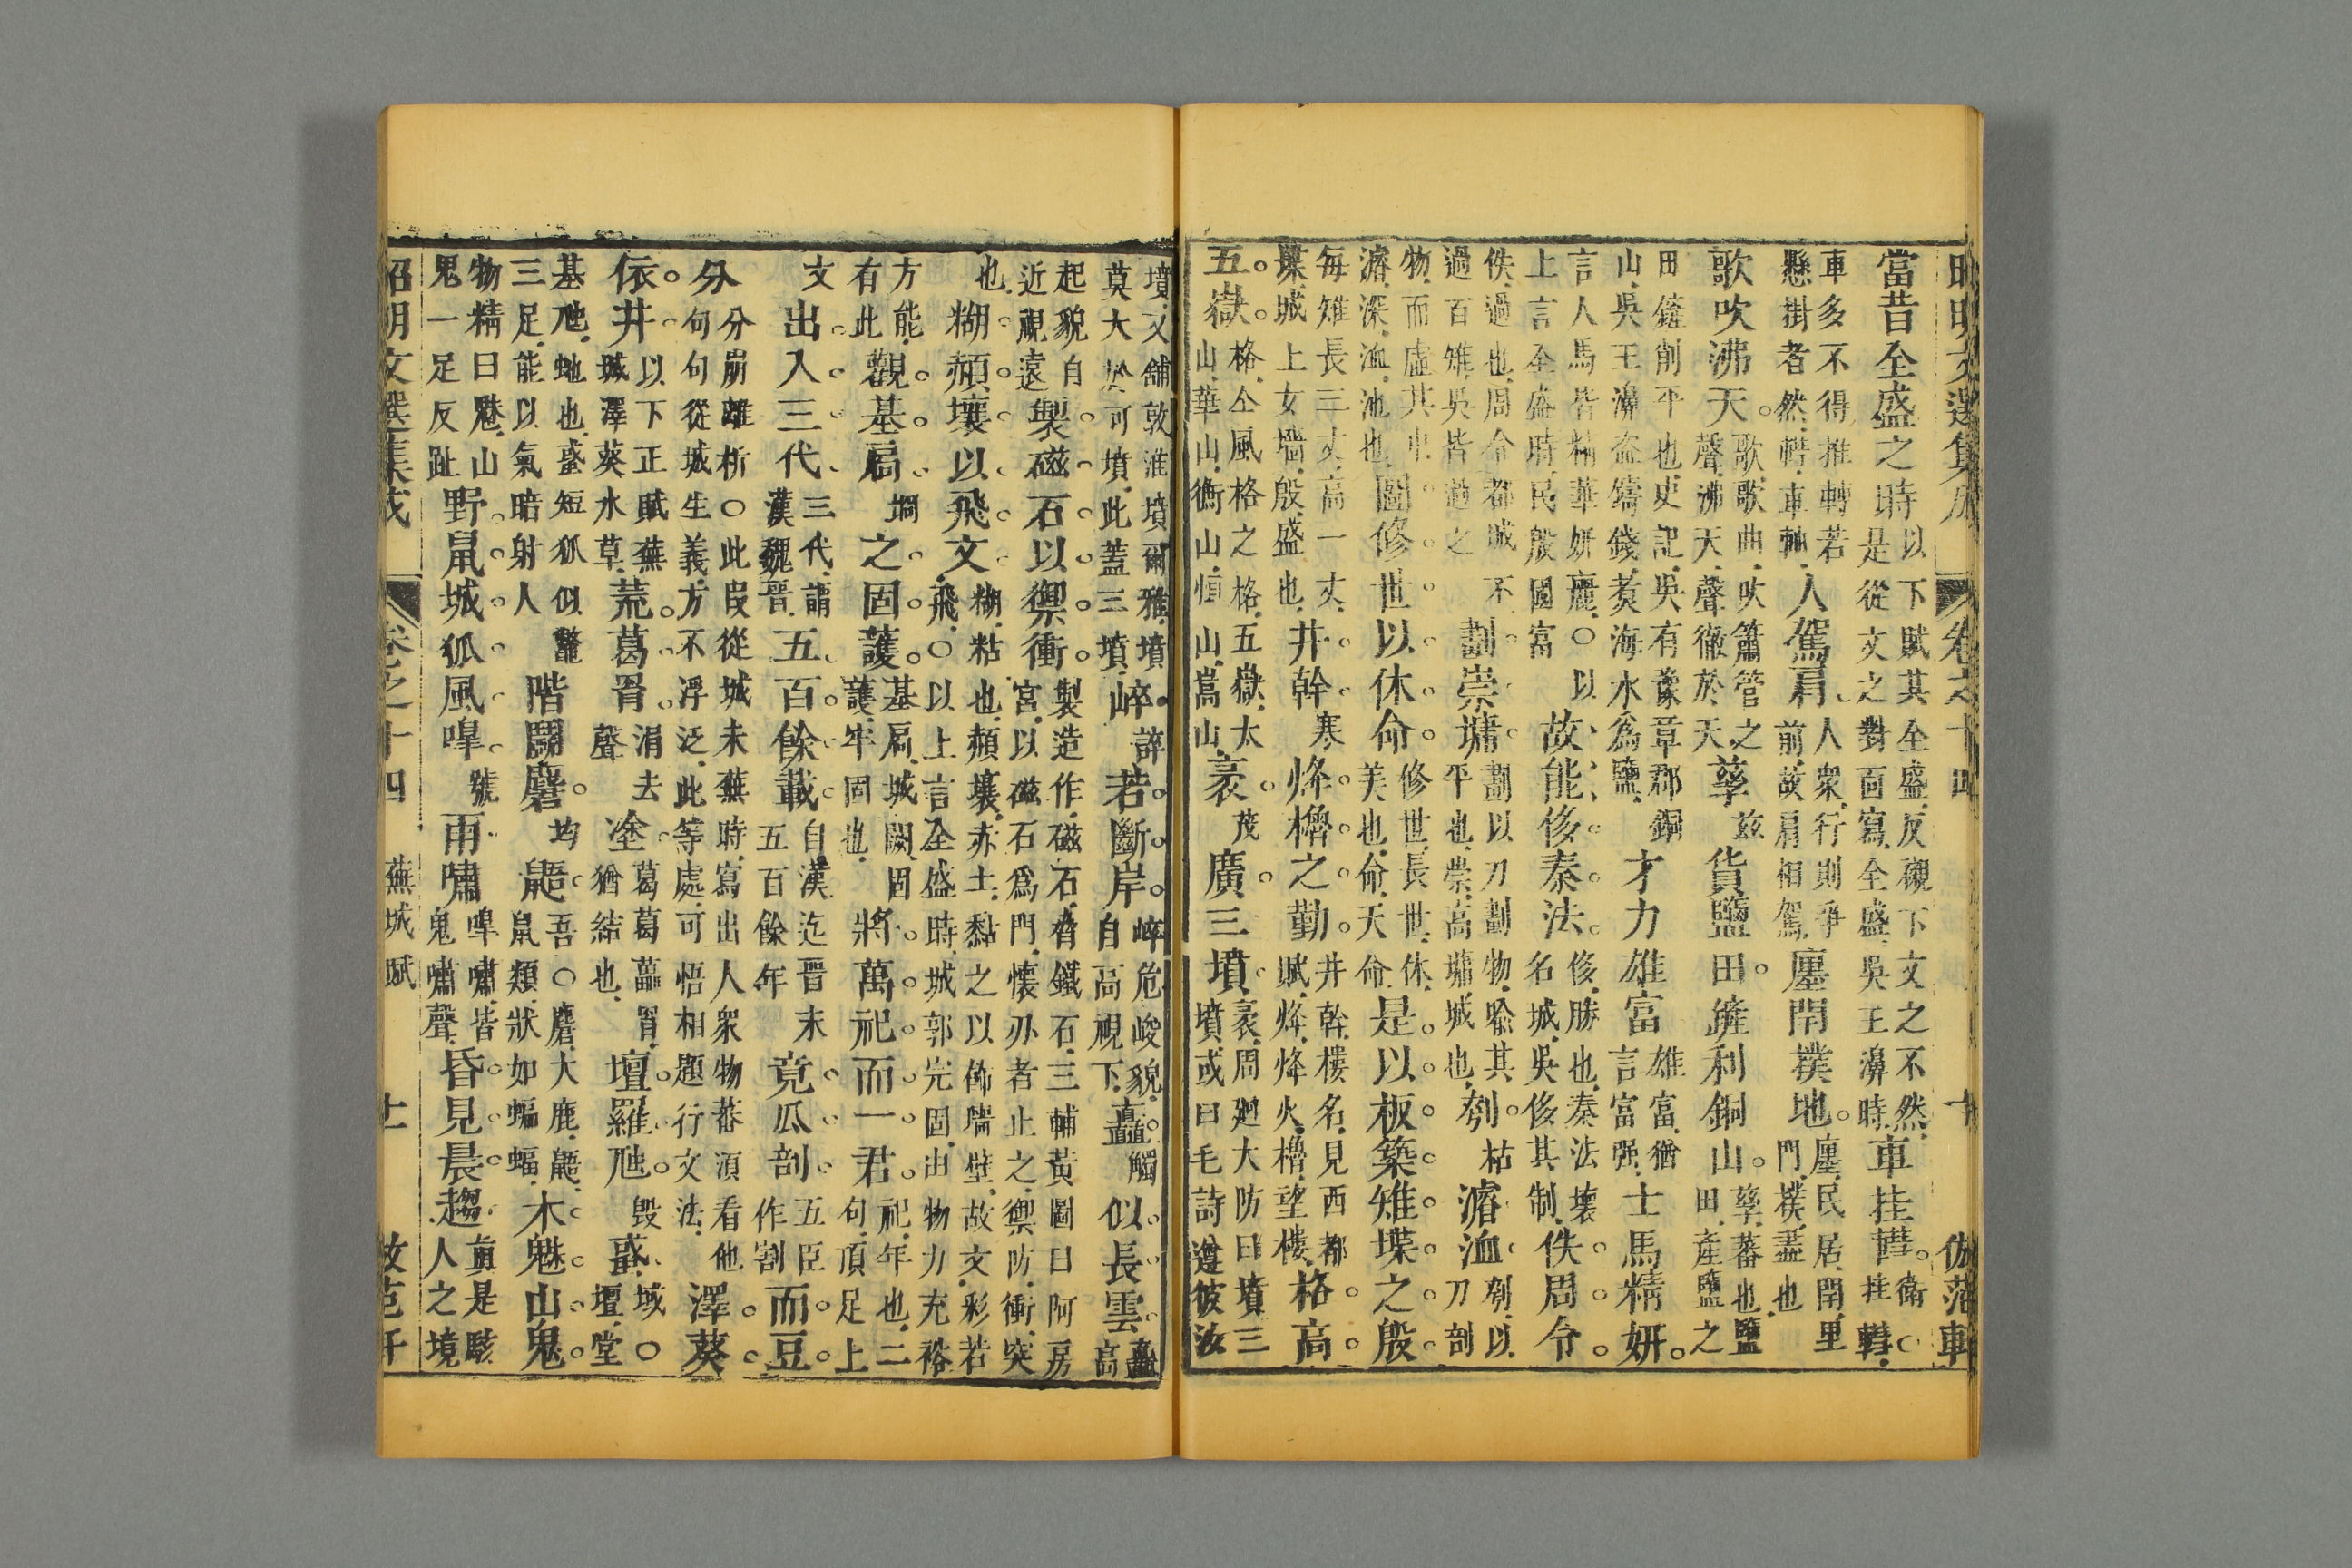 昭明文選集成 卷之十四 十 倣范軒
當昔全盛之時以下賦其全盛反襯下文之不然是從文之對面寫全盛吳王濞時車挂轊衛○挂轊
車多不得推轉若懸掛者然轊車軸人駕肩人衆行則爭前故肩相駕廛閈撲地廛民居閈里門撲盡也
歌吹沸天歌歌曲吹簫管之聲沸天聲徹於天孳茲貨鹽田鏟利銅山孳蕃也鹽田產鹽之
田鏟削平也史記吳有豫章郡銅山吳王濞盜鑄錢煑海水爲鹽才力雄富雄富猶言富强士馬精妍
言人馬皆精華妍麗○以上言全盛時民殷國富故能侈秦法侈勝也秦法壞名城吳侈其制佚周令
佚過也周令都城不過百雉吳皆過之劃崇墉劃以刀劃物喻其平也崇高墉城也刳枯濬洫刳以刀剖
物而虛其中濬深洫池也圖修世以休命修世長世休美也命天命是以板築雉堞之殷
每雉長三丈高一丈堞城上女墻殷盛也井幹寒烽櫓之勤井幹樓名見西都賦烽烽火櫓望樓格高
五嶽格仝風格之格五嶽太山華山衡山恒山嵩山袤茂廣三墳袤周廻大防曰墳三墳或曰毛詩遵彼汝
墳又舖敦淮墳爾雅墳莫大於可墳此蓋三墳崪誶若斷岸崪危峻貌自高視下矗觸似長雲矗高
起貌自近視遠製磁石以禦衝製造作磁石脅鐵石三輔黃圖曰阿房宮以磁石爲門懷刃者止之禦防衝突
也糊頳壤以飛文糊粘也頳壤赤土黏之以佈墻壁故文彩若飛○以上言全盛時城郭完固由物力充裕
方能有此觀基扃坰之固護基扃城闕固護牢固也將萬祀而一君祀年也二句頂足上
文出入三代三代謂漢魏晉五百餘載自漢迄晉末五百餘年竟瓜剖五臣作割而豆
分分崩離析○此叚從城未蕪時寫出人衆物蕃湏看他句句從城生義方不浮泛此等處可悟相題行文法澤葵
依井以下正賦蕪城澤葵水草荒葛罥涓去聲塗葛葛藟罥猶結也壇羅虺毁蜮域○壇堂
基虺虵也蜮短狐似鼈三足能以氣暗射人階鬭麏均鼯吾○麏大鹿鼯鼠類狀如蝙蝠木魅山鬼
物精曰魅山鬼一足反趾野鼠城狐風嘷號雨嘯嘷嘯皆鬼嘯聲昏見晨趨眞是駭人之境
昭明文選集成 卷之十四 蕪城賦 十一 倣范軒